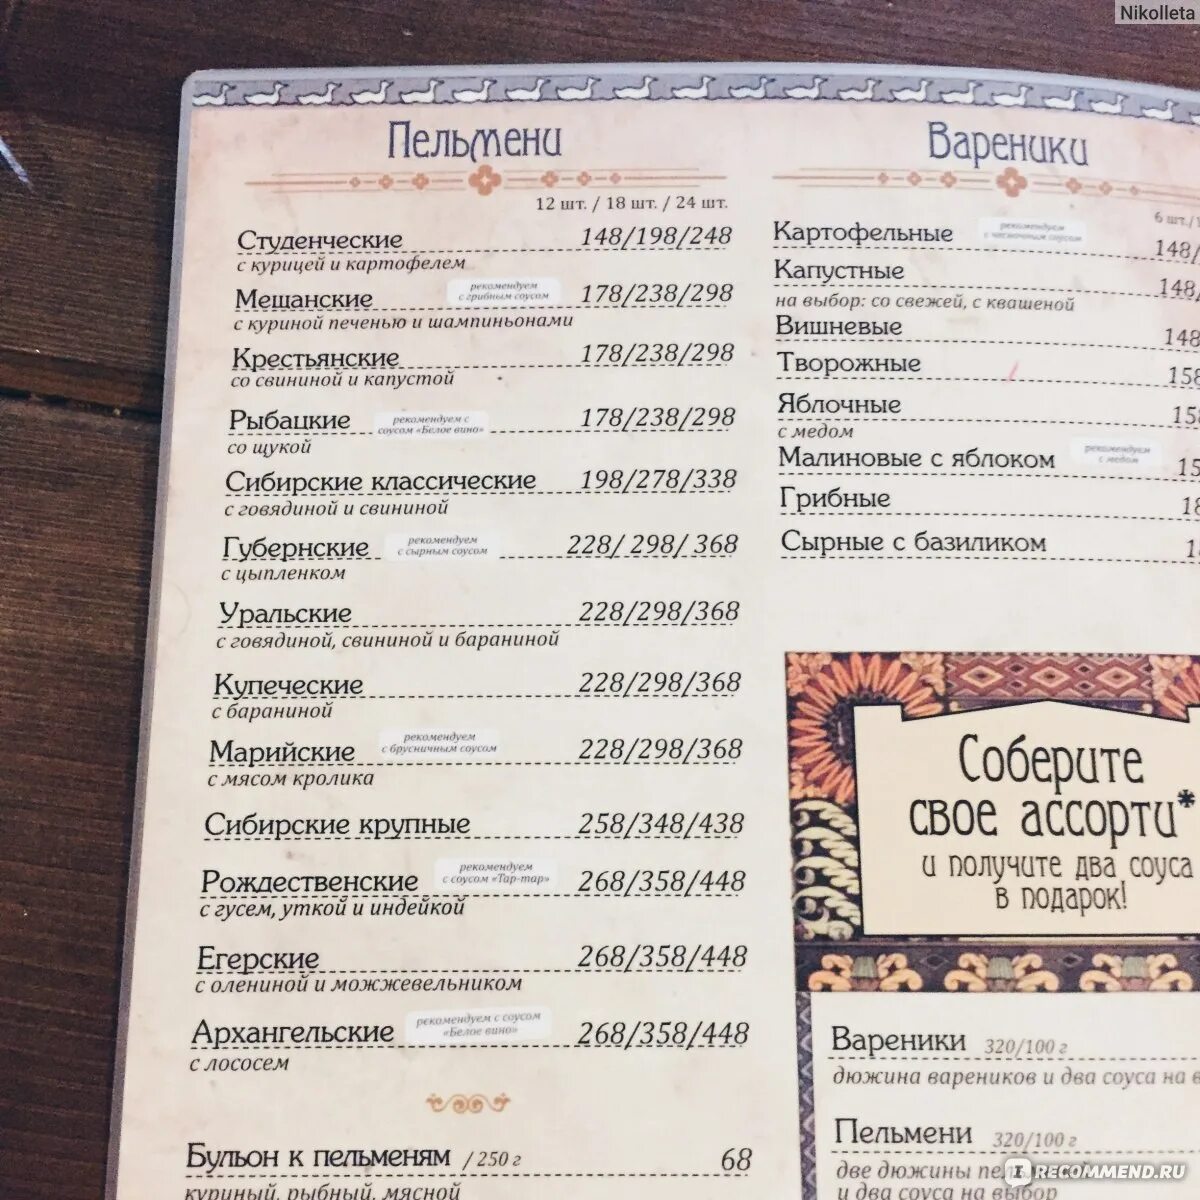 Nikolleta
Пельмени
12 шт. / 18 шт. / 24 шт.
Студенческие 148/198/248
с курицей и картофелем
Мещанские рекомендуем с грибным соусом 178/238/298
с куриной печенью и шампиньонами
Крестьянские 178/238/298
со свининой и капустой
Рыбацкие рекомендуем с соусом «Белое вино» 178/238/298
со щукой
Сибирские классические 198/278/338
с говядиной и свининой
Губернские рекомендуем с сырным соусом 228/ 298/ 368
с цыпленком
Уральские 228/298/368
с говядиной, свининой и бараниной
Купеческие 228/298/368
с бараниной
Марийские рекомендуем с брусничным соусом 228/298/368
с мясом кролика
Сибирские крупные 258/348/438
Рождественские рекомендуем с соусом «Тар-тар» 268/358/448
с гусем, уткой и индейкой
Егерские 268/358/448
с олениной и можжевельником
Архангельские рекомендуем с соусом «Белое вино» 268/358/448
с лососем
Бульон к пельменям / 250 г 68
куриный, рыбный, мясной
Вареники
6 шт./
Картофельные рекомендуем с чесночным соусом 148/
Капустные 148/
на выбор: со свежей, с квашеной
Вишневые 148
Творожные 158
Яблочные 15
с медом
Малиновые с яблоком рекомендуем с медом 15
Грибные 18
Сырные с базиликом 1
Соберите
свое ассорти*
и получите два соуса
в подарок!
Вареники 320/100 г
дюжина вареников и два соуса на в
Пельмени 320/100 г
две дюжины
и два соуса на выбор
IRECOMMEND.RU